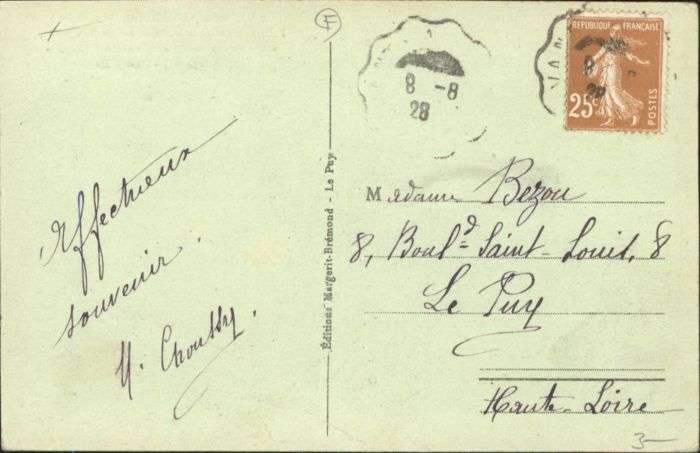 Affectueux
souvenir.
Éditions Margerit-Brémond - Le Puy
F
8 -8
28
8
28
REPUBLIQUE FRANÇAISE
25c
POSTES
Madame Bezou
8, Boul.d Saint-Louis, 8
Le Puy
Haute-Loire
3-